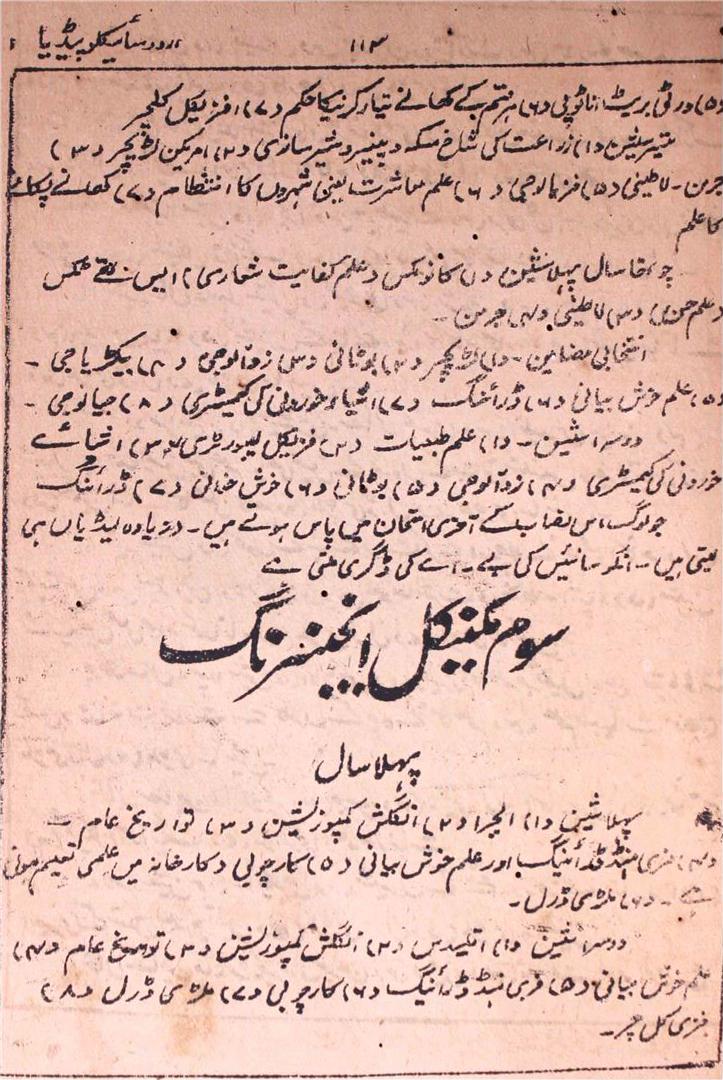 اردو سائیکلوپیڈیا ۱۱۳
(۵) ورٹی بریٹ اناٹومی (۶) ہر قسم کے کھانے تیار کرنیکا حکم (۷) فزیکل کلچر
سیشن (۱) زراعت کی شاخ مسکہ و پنیر و شیر سازی (۲) امریکن لٹریچر (۳)
جرمن - لاطینی (۵) فزیالوجی (۶) علم معاشرت یعنی شہروں کا انتظام (۷) کھانے پکانے
کا علم
چوتھا سال پہلا سشین (۱) کانومکس (علم کفایت شعاری) ایس تھے ٹکس
(علم حسن) (۳) لاطینی (۴) جرمن -
انتخابی مضامین - (۱) لٹریچر (۲) بوٹانی (۳) زوآلوجی (۴) بیکٹریاجی -
(۵) علم خوش بیانی (۶) ڈرائنگ (۷) اشیاء خوردنی کی کیمسٹری (۸) جیالوجی -
دوسرا سشین - (۱) علم طبعیات (۲) فزیکل لیبورٹری (۳) اشیائے
خوردنی کی کیمسٹری (۴) زوآلوجی (۵) بوٹانی (۶) خوش خانی (۷) ڈرائنگ
جو لوگ اس نصاب کے آخری امتحان میں پاس ہوتے ہیں - (زیادہ لیڈیاں ہی
لیتی ہیں - انکو سائنیس کی بے - اے کی ڈگری ملتی ہے
سوم مکینیکل انجینئرنگ
پہلا سال
پہلا سشین (۱) الجبرا (۲) انگلش کمپوزیشن (۳) تواریخ عام -
(۴) فری ہینڈ ڈرائینگ اور علم خوش بیانی (۵) کارچوبی (کارخانہ میں علمی تعلیم ہوتی
ہے - (۶) ملٹری ڈرل -
دوسرا سشین (۱) اقلیدس (۲) انگلش کمپوزیشن (۳) تواریخ عام (۴)
علم خوش بیانی (۵) فری ہینڈ ڈرائینگ (۶) کارچوبی (۷) ملٹری ڈرل (۸)
فزی کل چر -